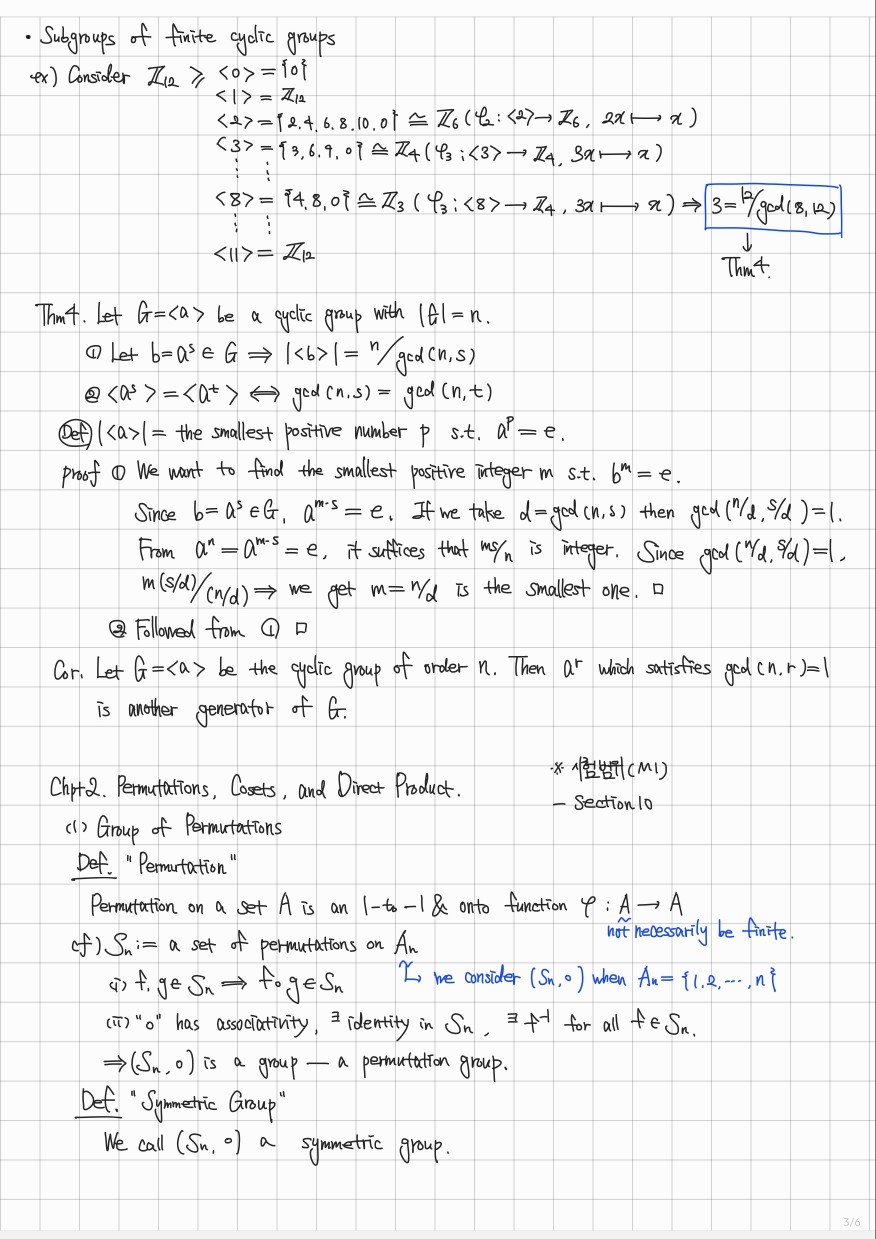 • Subgroups of finite cyclic groups
ex) Consider ℤ₁₂ ≥ <0> = {0}
<1> = ℤ₁₂
<2> = {2, 4, 6, 8, 10, 0} ≅ ℤ₆ (φ₂ : <2> → ℤ₆, 2x ↦ x)
<3> = {3, 6, 9, 0} ≅ ℤ₄ (φ₃ : <3> → ℤ₄, 3x ↦ x)
⋮ ⋮
<8> = {4, 8, 0} ≅ ℤ₃ (φ₃ : <8> → ℤ₄, 3x ↦ x) ⇒ 3 = 12/gcd(8, 12)
⋮ ⋮ ↓
<11> = ℤ₁₂ Thm4.
Thm4. Let G = <a> be a cyclic group with |G| = n.
① Let b = aˢ ∈ G ⇒ |<b>| = n/gcd(n, s)
② <aˢ> = <aᵗ> ⇔ gcd(n, s) = gcd(n, t)
Def |<a>| = the smallest positive number p s.t. aᵖ = e.
proof ① We want to find the smallest positive integer m s.t. bᵐ = e.
Since b = aˢ ∈ G, a^{m·s} = e. If we take d = gcd(n, s) then gcd(n/d, s/d) = 1.
From aⁿ = a^{m·s} = e, it suffices that ms/n is integer. Since gcd(n/d, s/d) = 1,
m(s/d)/(n/d) ⇒ we get m = n/d is the smallest one. □
② Followed from ① □
Cor. Let G = <a> be the cyclic group of order n. Then aʳ which satisfies gcd(n, r) = 1
is another generator of G.
※ 시험범위 (M1)
Chpt2. Permutations, Cosets, and Direct Product.
– Section 10
(1) Group of Permutations
Def. "Permutation"
Permutation on a set A is an 1-to-1 & onto function φ : A → A
not necessarily be finite.
cf) Sₙ := a set of permutations on Aₙ
↳ we consider (Sₙ, ∘) when Aₙ = {1, 2, ⋯, n}
(i) f, g ∈ Sₙ ⇒ f∘g ∈ Sₙ
(ii) "∘" has associativity, ∃ identity in Sₙ, ∃ f⁻¹ for all f ∈ Sₙ.
⇒ (Sₙ, ∘) is a group — a permutation group.
Def. "Symmetric Group"
We call (Sₙ, ∘) a symmetric group.
3/6